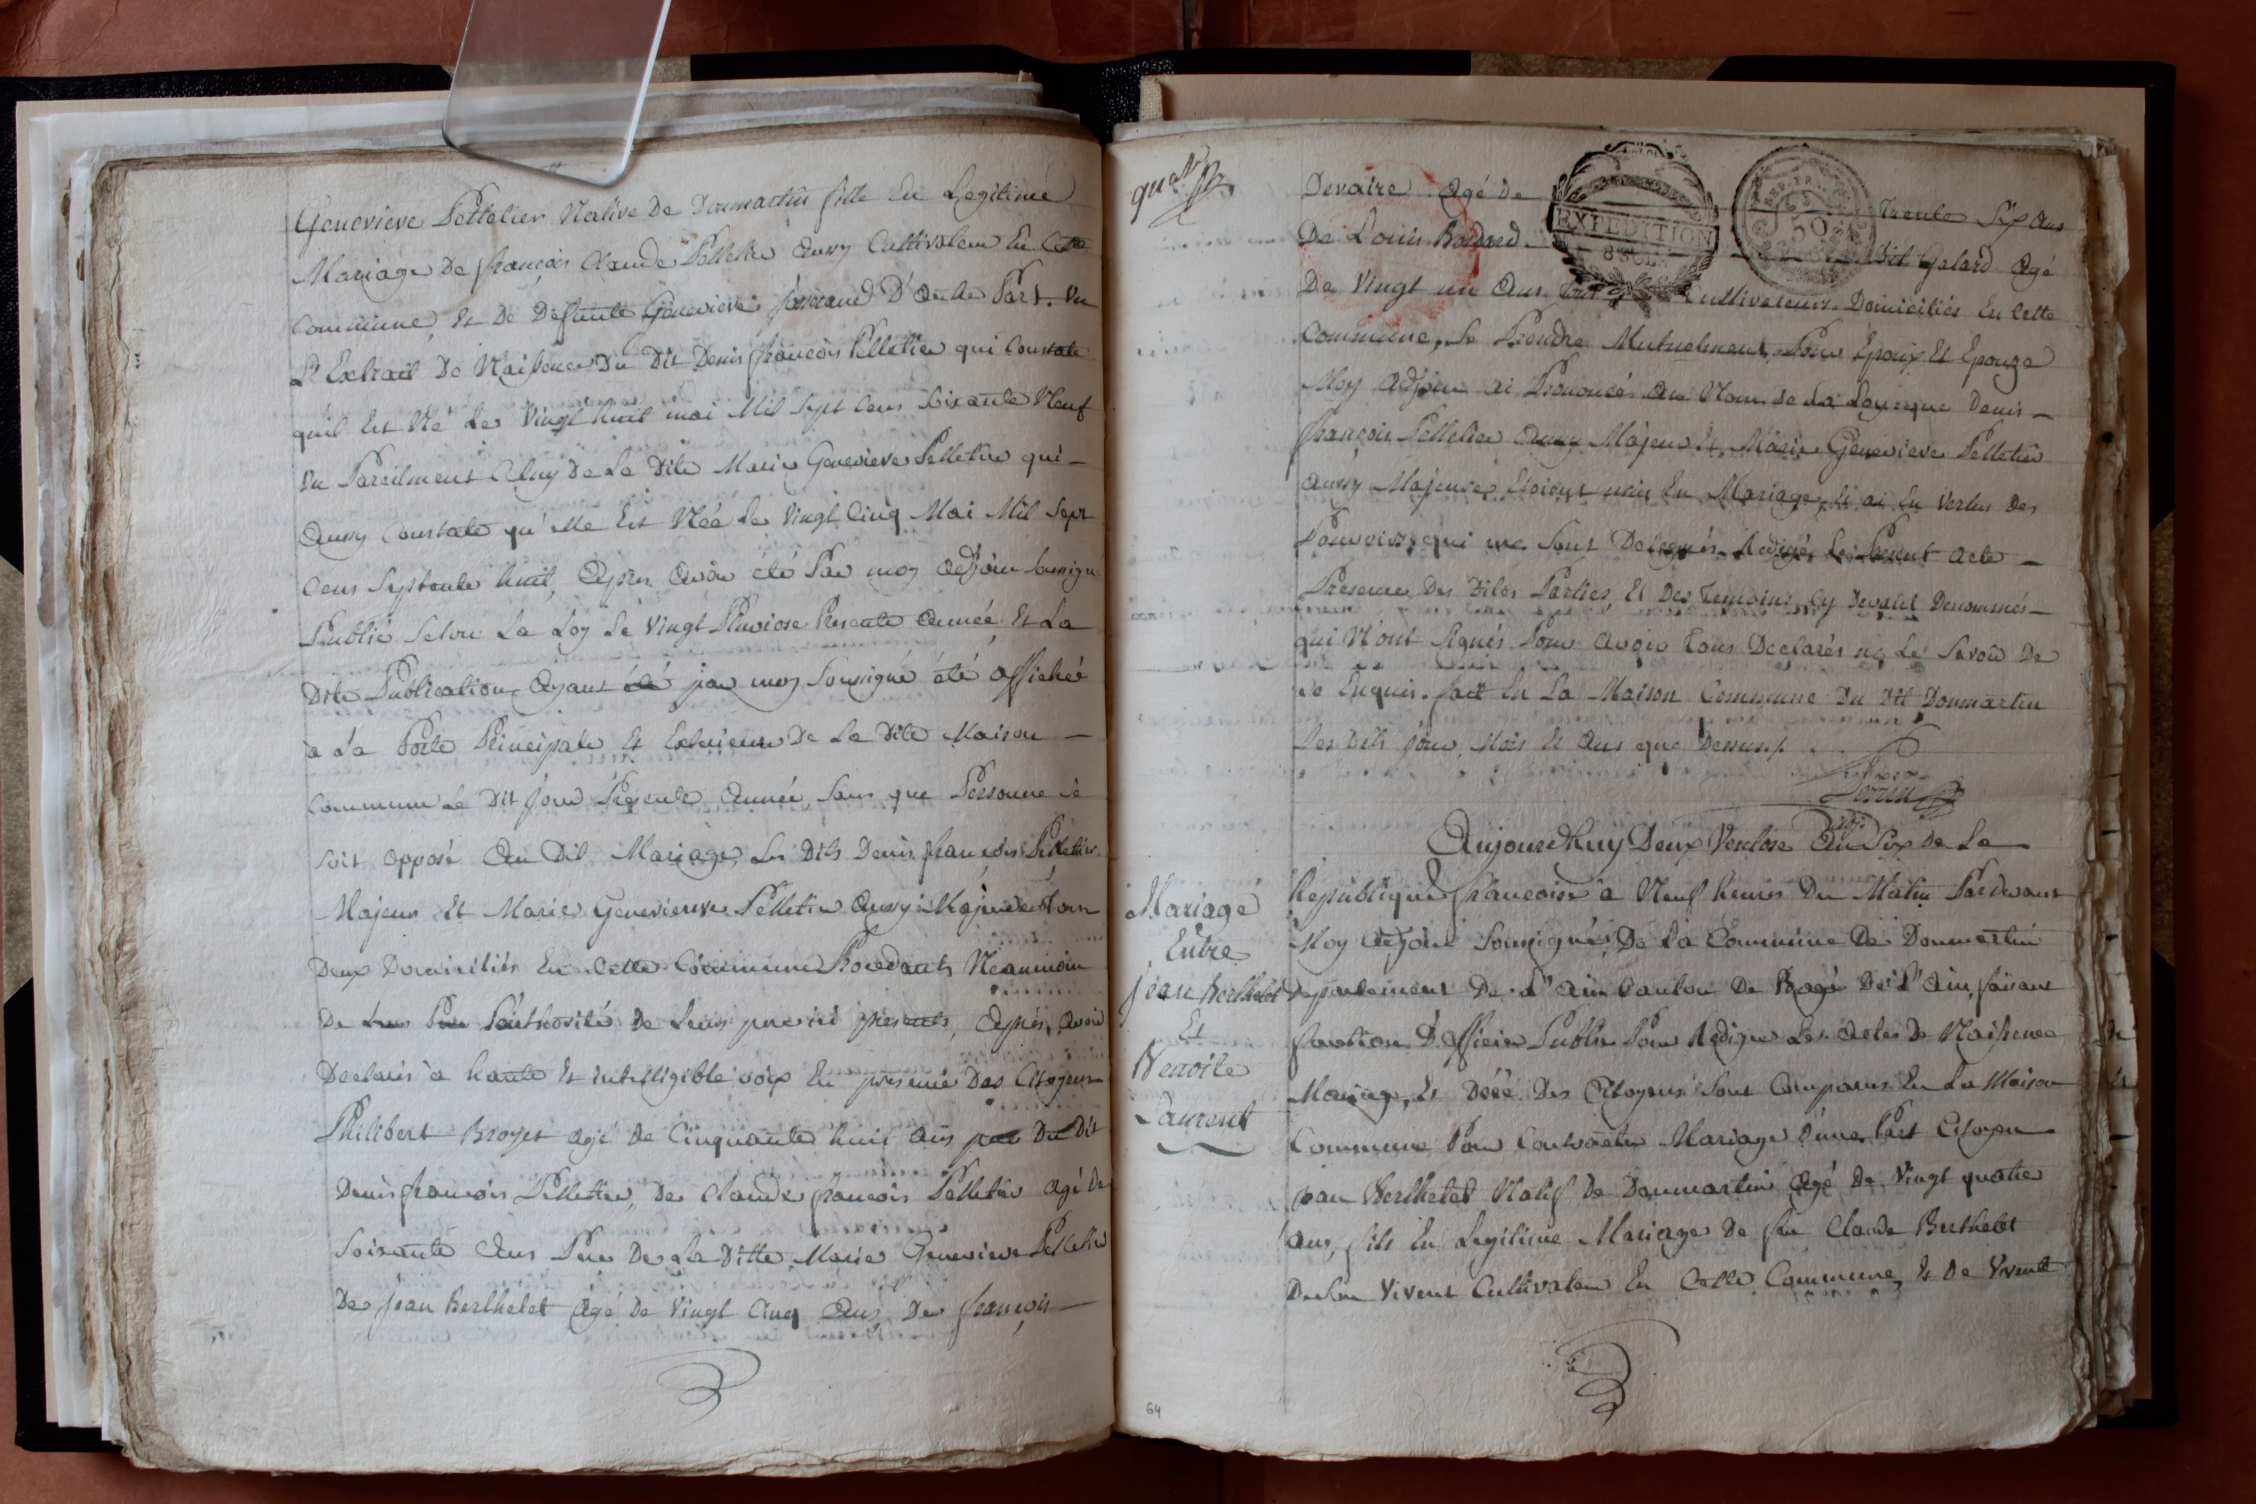 Genevieve Pelletier Native De Donmartin fille En Legitime
Mariage De françois Claude Pelletier Aussy Cultivateur En Cette
Commune, Et De Defunte Genevieve D'autre Part. Vu
L'Extrait De Naissence Du Dit Denis françois Pelletier qui Constate
quil Est Né Le Vingt huit mai Mil Sept Cens Soixante Neuf
Vu Pareilment Celuy De La Dite Marie Genevieve Pelletier qui
Aussy Constate qu'elle Est Née Le Vingt Cinq Mai Mil Sept
Cens Septente huit, Après Avoir été Par moy Adjoin Soussigné
Publié Selon La Loy Le Vingt Pluviose Presente Année Et La
Dite Publication Ayant été par moy Soussigné été Affichée
à La Porte Principale Et Exterieure De La Dite Maison
Commune Le Dit jour Presente Année Sans que Personne Se
Soit Opposé Au Dit Mariage, Les Dits Denis françois Pelletier
Majeur Et Marie Genevieve Pelletier Aussy Majeure Tous
Deux Domiciliés En Cette Commune Procedants Neanmoin
De L'authorité De Leurs presents, Après Avoir
Declarés à haute Et intelligible voix En presence Des Citoyens
Philibert Broyer agé De Cinquante huit Ans Du Dit
Denis françois Pelletier, De Claude françois Pelletier agé De
Soixante Ans Pere De La Ditte Marie Genevieve Pelletier
De jean Berthelet Agé De Vingt Cinq Ans De françois
Devaire Agé De Trente Six Ans
EXPEDITION
8 SOLS
REP. FR.
50
De Louis Dit Galard Agé
De Vingt un Ans Tous Cultivateurs Domiciliés En Cette
Commune, Se Prendre Mutuelment Pour Epoux Et Epouze
Moy Adjoin ai Prononcé Au Nom De La Loy que Denis
françois Pelletier Aussy Majeur Et Marie Genevieve Pelletier
Aussy Majeure Etoient unis En Mariage, Et ai En Vertus Des
Pouvoirs qui me Sont Delegués Redigé Le Present Acte
Presence Des Dites Parties Et Des Temoins Cy Devant Denommés
qui N'ont Signés Pour Avoir Tous Declarés ne Le Savoir De
Ce Enquis. fait En La Maison Commune Du Dit Donmartin
Les Dits jour Mois Et Ans que Dessus
Mariage
Entre
jean Berthelet
Et
Benoite
Laurent
Aujourdhuy Deux Ventose An Six De La
Republique françoise a Neuf heures Du Matin Pardevant
Moy Adjoin Soussigné De La Commune De Donmartin
Departement De L'Ain Canton De Bagé De L'Ain, faisant
fonction D'Officier Public Pour Rediger Les Actes De Naissence
Mariage, Et Décé Des Citoyens Sont Comparus En La Maison
Commune Pour Contracter Mariage D'une Part Citoyen
jean Berthelet Natif De Donmartin Agé De Vingt quatre
Ans, fils En Legitime Mariage De feu Claude Berthelet
De Son Vivent Cultivateur En Cette Commune, Et De Vivente
64